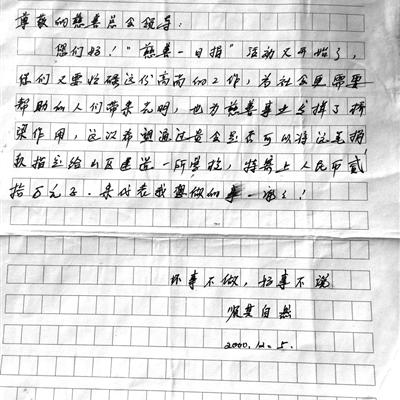 尊敬的慈善总会领导：
您们好！"慈善一日捐"活动又开始了，
您们又要忙碌这份高尚的工作，为社会更需要
帮助的人们带来光明，也为慈善事业发挥了桥
梁作用，这次希望通过贵会是否可以将这笔捐
款指定给山区建造一所学校，特寄上人民币贰
拾万元正．来代表我要做的事一谢！
坏事不做，好事不说
顺其自然
2000.12.5.